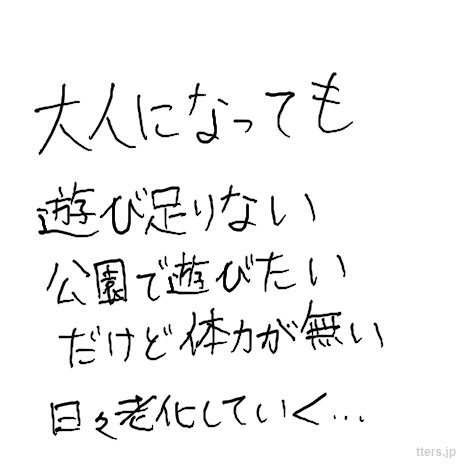 大人になっても
遊び足りない
公園で遊びたい
だけど体力が無い
日々老化していく...
tters.jp